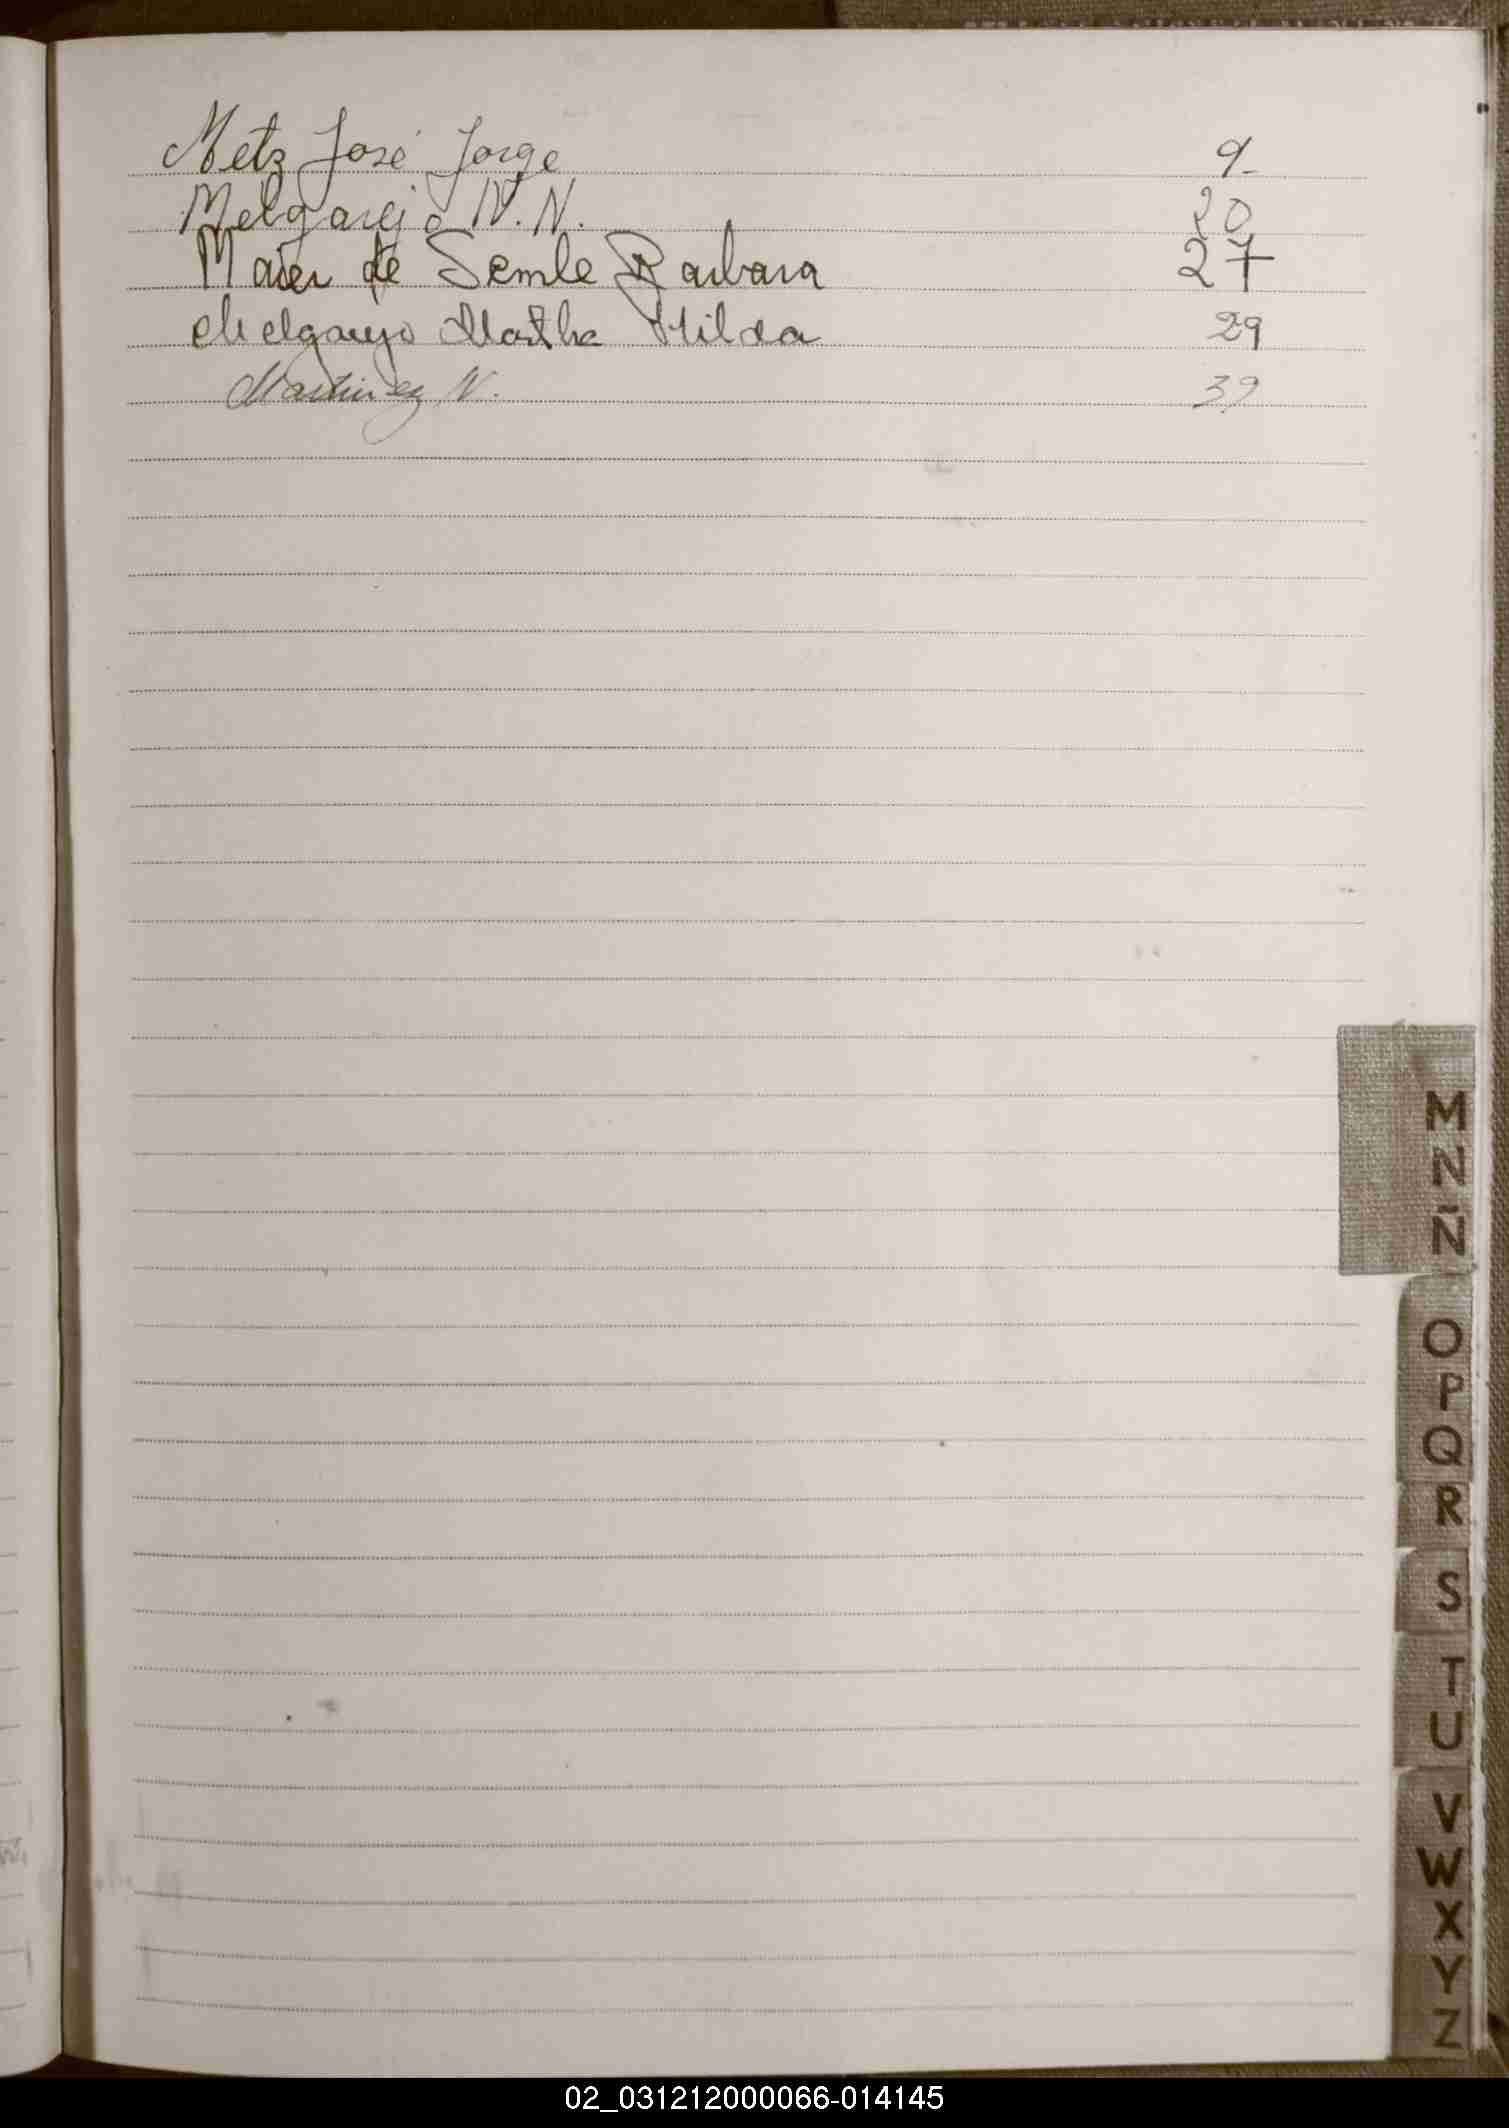 Metz José Jorge 9-
Melgarejo N. N. 20
Maier de Semle Barbara 27
Melgarejo Martha Hilda 29
Martinez N. 39
M
N
Ñ
O
P
Q
R
S
T
U
V
W
X
Y
Z
02_031212000066-014145